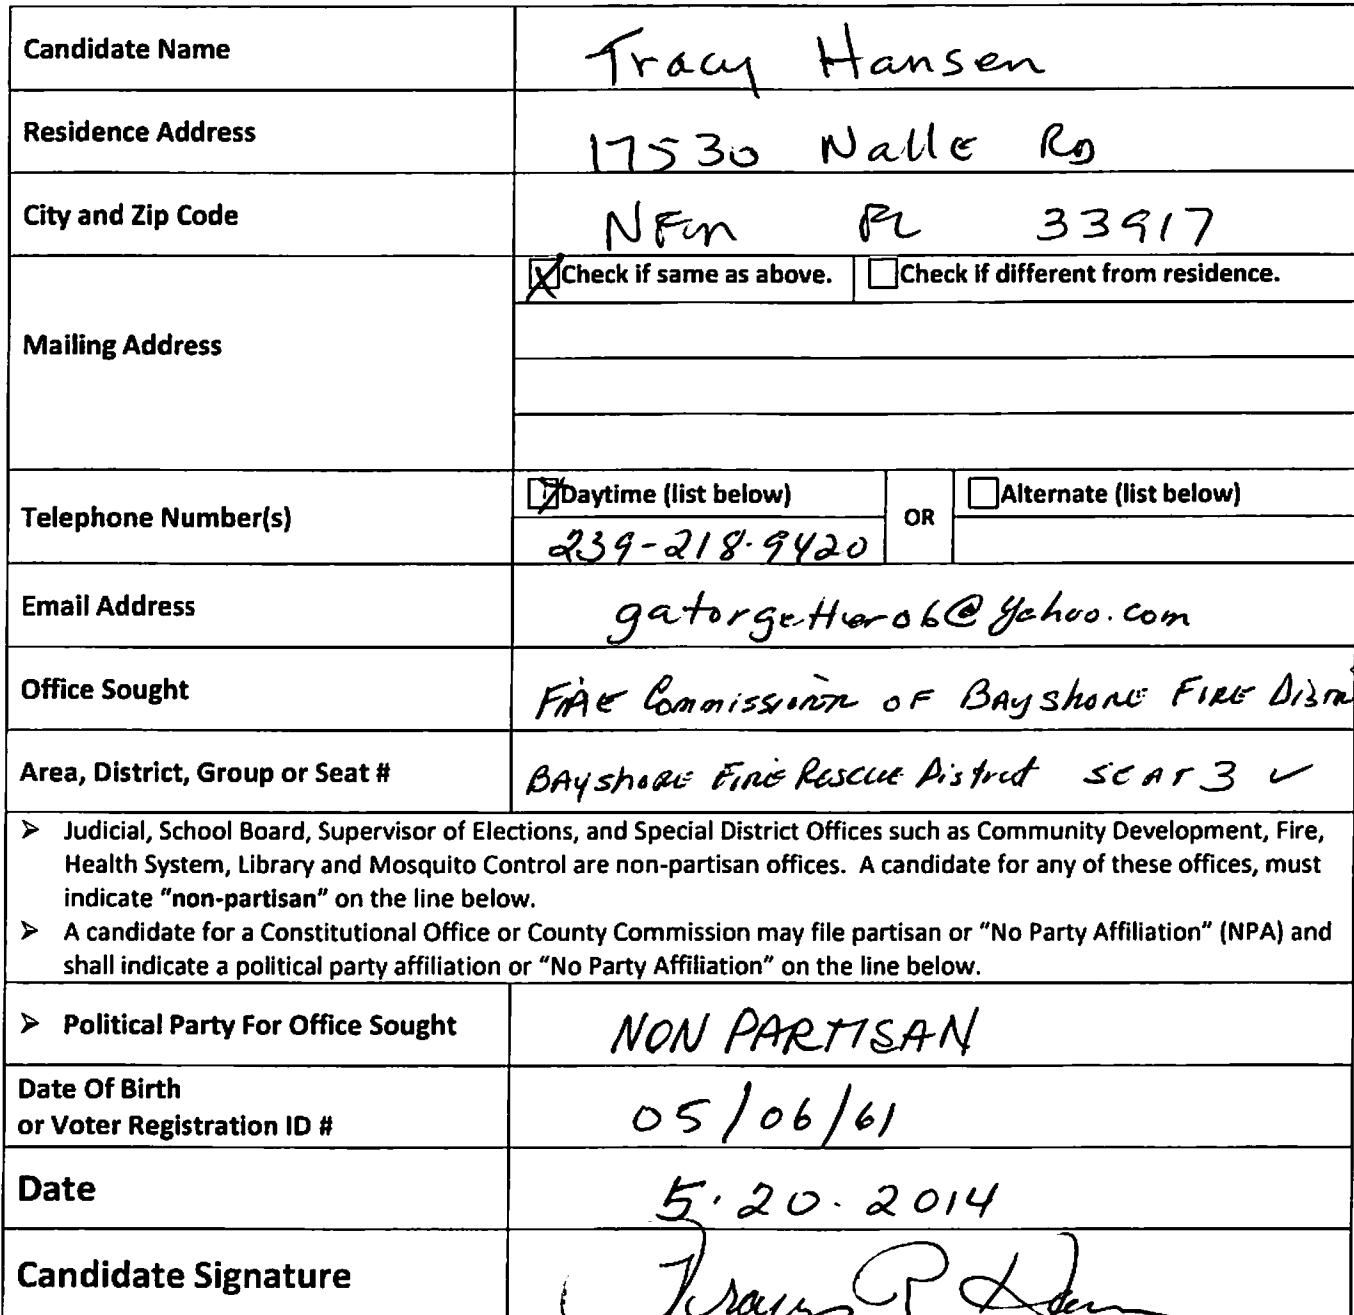 Candidate Name Tracy Hansen
Residence Address 17530 Nalle RD
City and Zip Code NFM FL 33917
Check if same as above. Check if different from residence.
Mailing Address
Daytime (list below) OR Alternate (list below)
Telephone Number(s)
239-218-9420
Email Address @yahoo.com
Office Sought FIRE OF BAYSHORE FIRE
Area, District, Group or Seat # BAYSHORE FIRE RESCUE District SEAT 3 ✓
➢ Judicial, School Board, Supervisor of Elections, and Special District Offices such as Community Development, Fire,
Health System, Library and Mosquito Control are non-partisan offices. A candidate for any of these offices, must
indicate "non-partisan" on the line below.
➢ A candidate for a Constitutional Office or County Commission may file partisan or "No Party Affiliation" (NPA) and
shall indicate a political party affiliation or "No Party Affiliation" on the line below.
➢ Political Party For Office Sought NON PARTISAN
Date Of Birth
or Voter Registration ID # 05/06/61
Date 5.20.2014
Candidate Signature